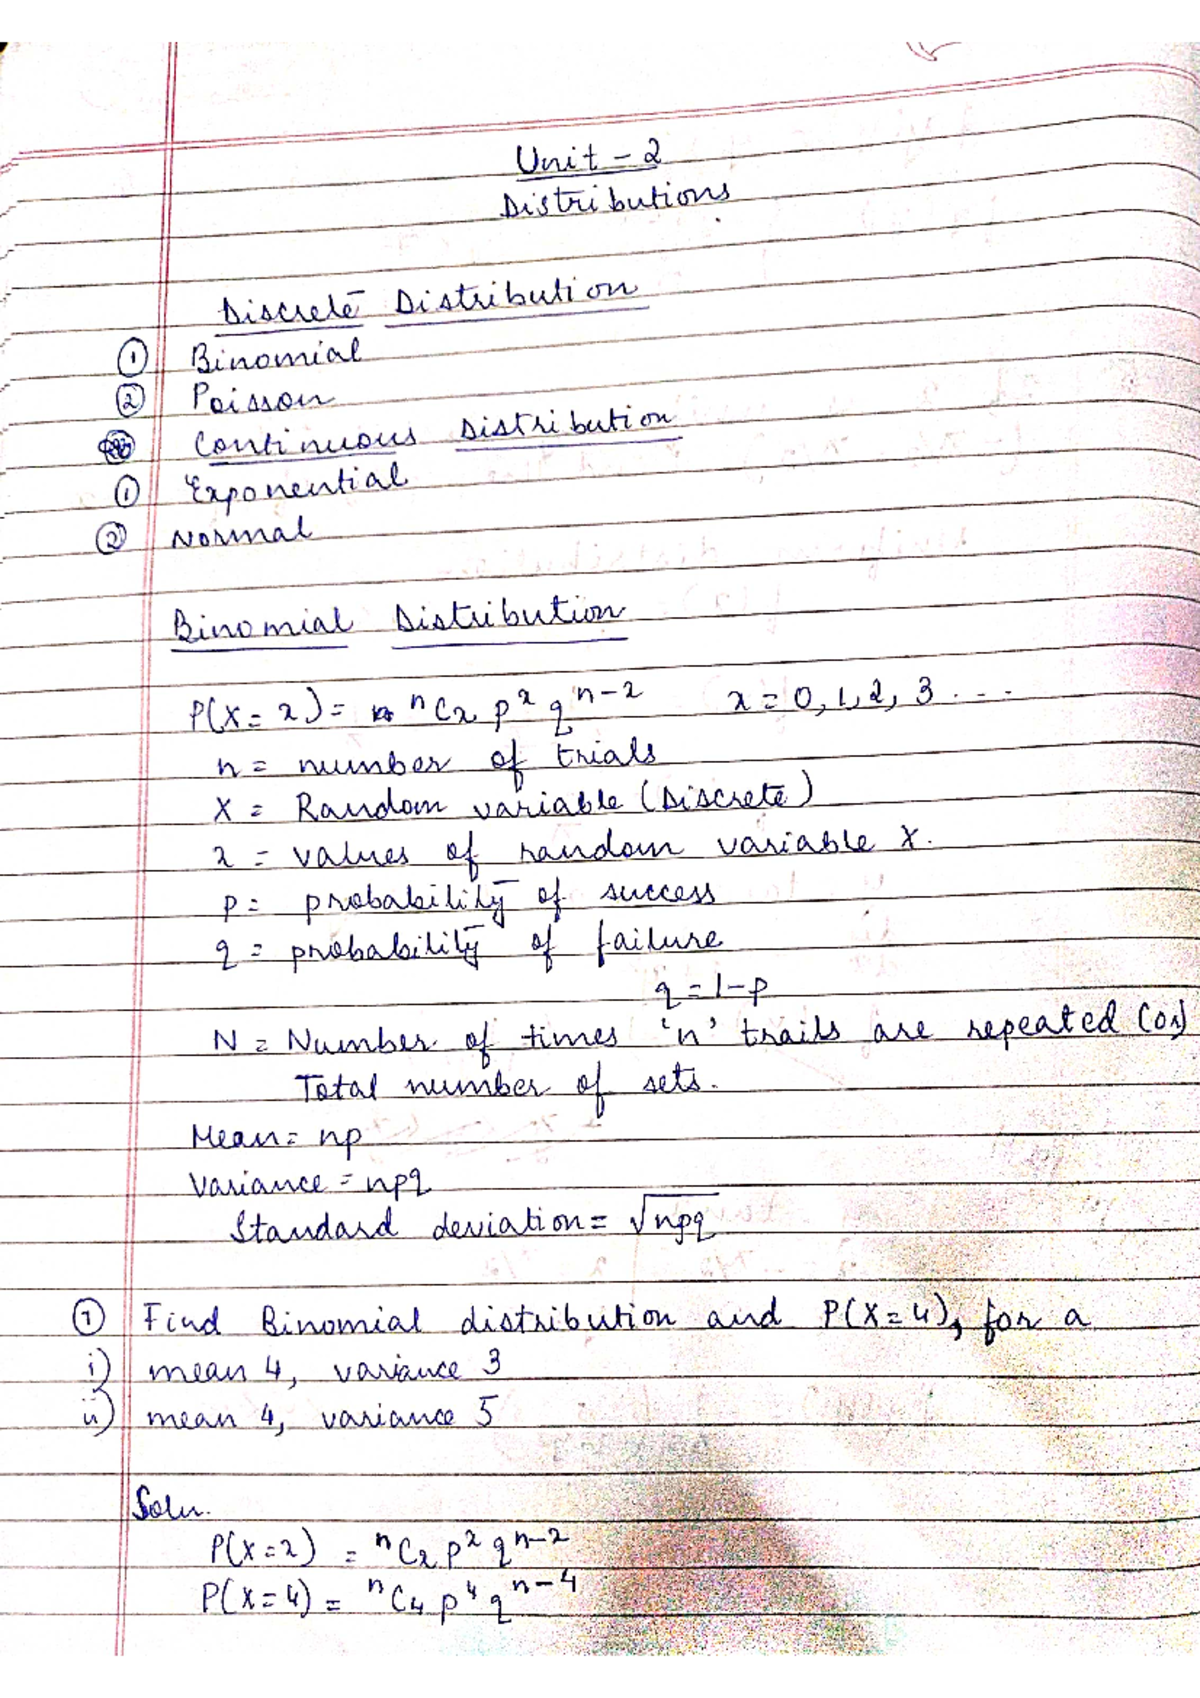 Unit - 2
Distributions
Discrete Distribution
① Binomial
② Poisson
Continuous Distribution
① Exponential
② Normal
Binomial Distribution
P(X = x) = ⁿCₓ pˣ qⁿ⁻ˣ x = 0, 1, 2, 3 ....
n = number of trials
X = Random variable (Discrete)
x = values of random variable X.
p = probability of success
q = probability of failure
q = 1-p
N = Number of times 'n' trails are repeated (or)
Total number of sets.
Mean = np
Variance = npq
Standard deviation = √npq
① Find Binomial distribution and P(X=4), for a
i) mean 4, variance 3
ii) mean 4, variance 5
Soln.
P(X=x) = ⁿCₓ pˣ qⁿ⁻ˣ
P(X=4) = ⁿC₄ p⁴ qⁿ⁻⁴